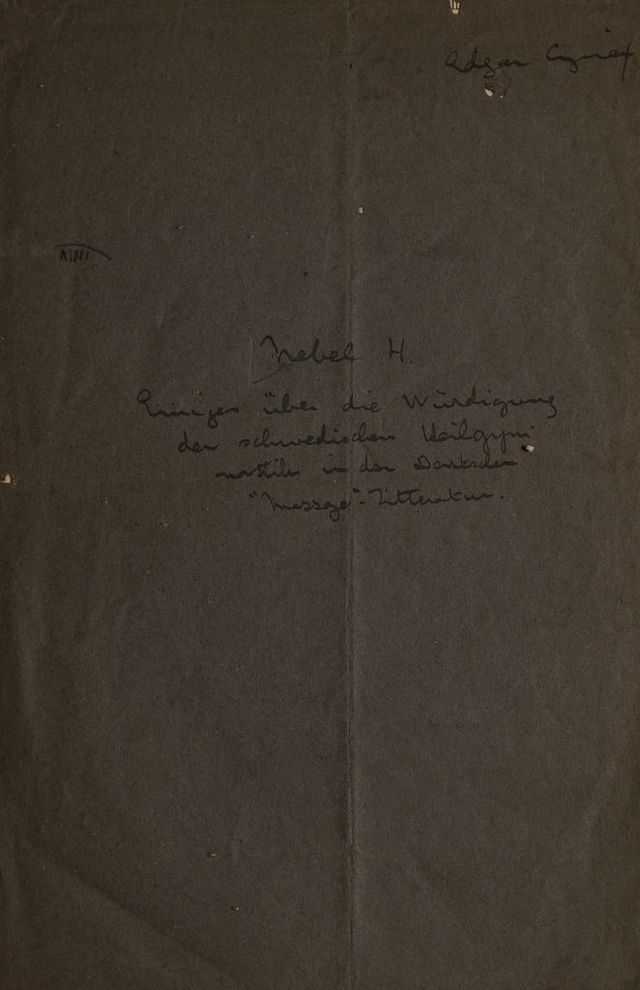 Edgar Cyriax
Nebel H.
Einiges über die Würdigung
der schwedischen Heilgym
nastik in der Deutschen
"Massage"-Litteratur.